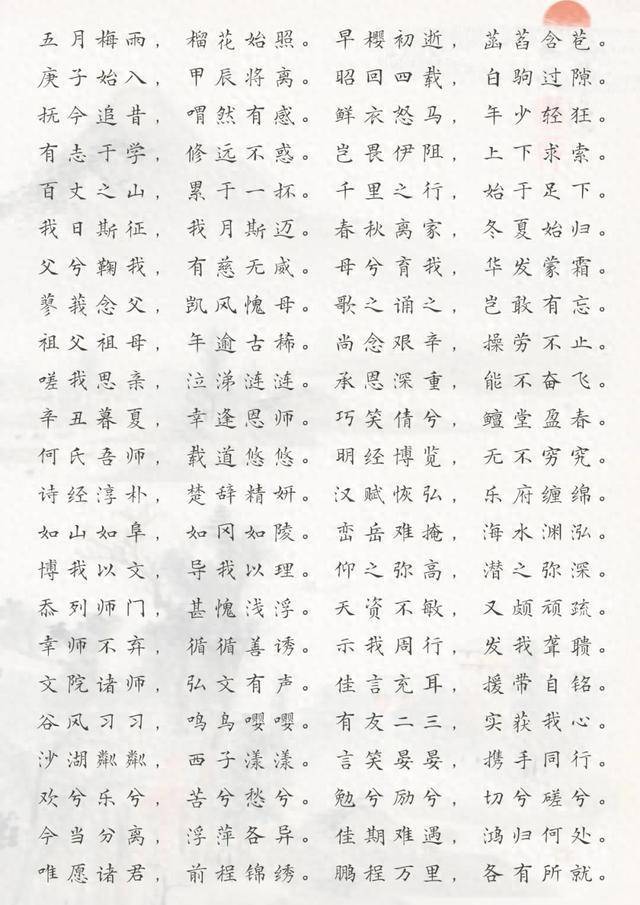 五月梅雨，榴花始照。早樱初逝，菡萏含苞。
庚子始入，甲辰将离。昭回四载，白驹过隙。
抚今追昔，喟然有感。鲜衣怒马，年少轻狂。
有志于学，修远不惑。岂畏伊阻，上下求索。
百丈之山，累于一抔。千里之行，始于足下。
我日斯征，我月斯迈。春秋离家，冬夏始归。
父兮鞠我，有慈无威。母兮育我，华发蒙霜。
蓼莪念父，凯风愧母。歌之诵之，岂敢有忘。
祖父祖母，年逾古稀。尚念艰辛，操劳不止。
嗟我思亲，泣涕涟涟。承恩深重，能不奋飞。
辛丑暮夏，幸逢恩师。巧笑倩兮，鳣堂盈春。
何氏吾师，载道悠悠。明经博览，无不穷究。
诗经淳朴，楚辞精妍。汉赋恢弘，乐府缠绵。
如山如阜，如冈如陵。峦岳难掩，海水渊泓。
博我以文，导我以理。仰之弥高，潜之弥深。
忝列师门，甚愧浅浮。天资不敏，又颇顽疏。
幸师不弃，循循善诱。示我周行，发我聋聩。
文院诸师，弘文有声。佳言充耳，援带自铭。
谷风习习，鸣鸟嘤嘤。有友二三，实获我心。
沙湖粼粼，西子漾漾。言笑晏晏，携手同行。
欢兮乐兮，苦兮愁兮。勉兮励兮，切兮磋兮。
今当分离，浮萍各异。佳期难遇，鸿归何处。
唯愿诸君，前程锦绣。鹏程万里，各有所就。